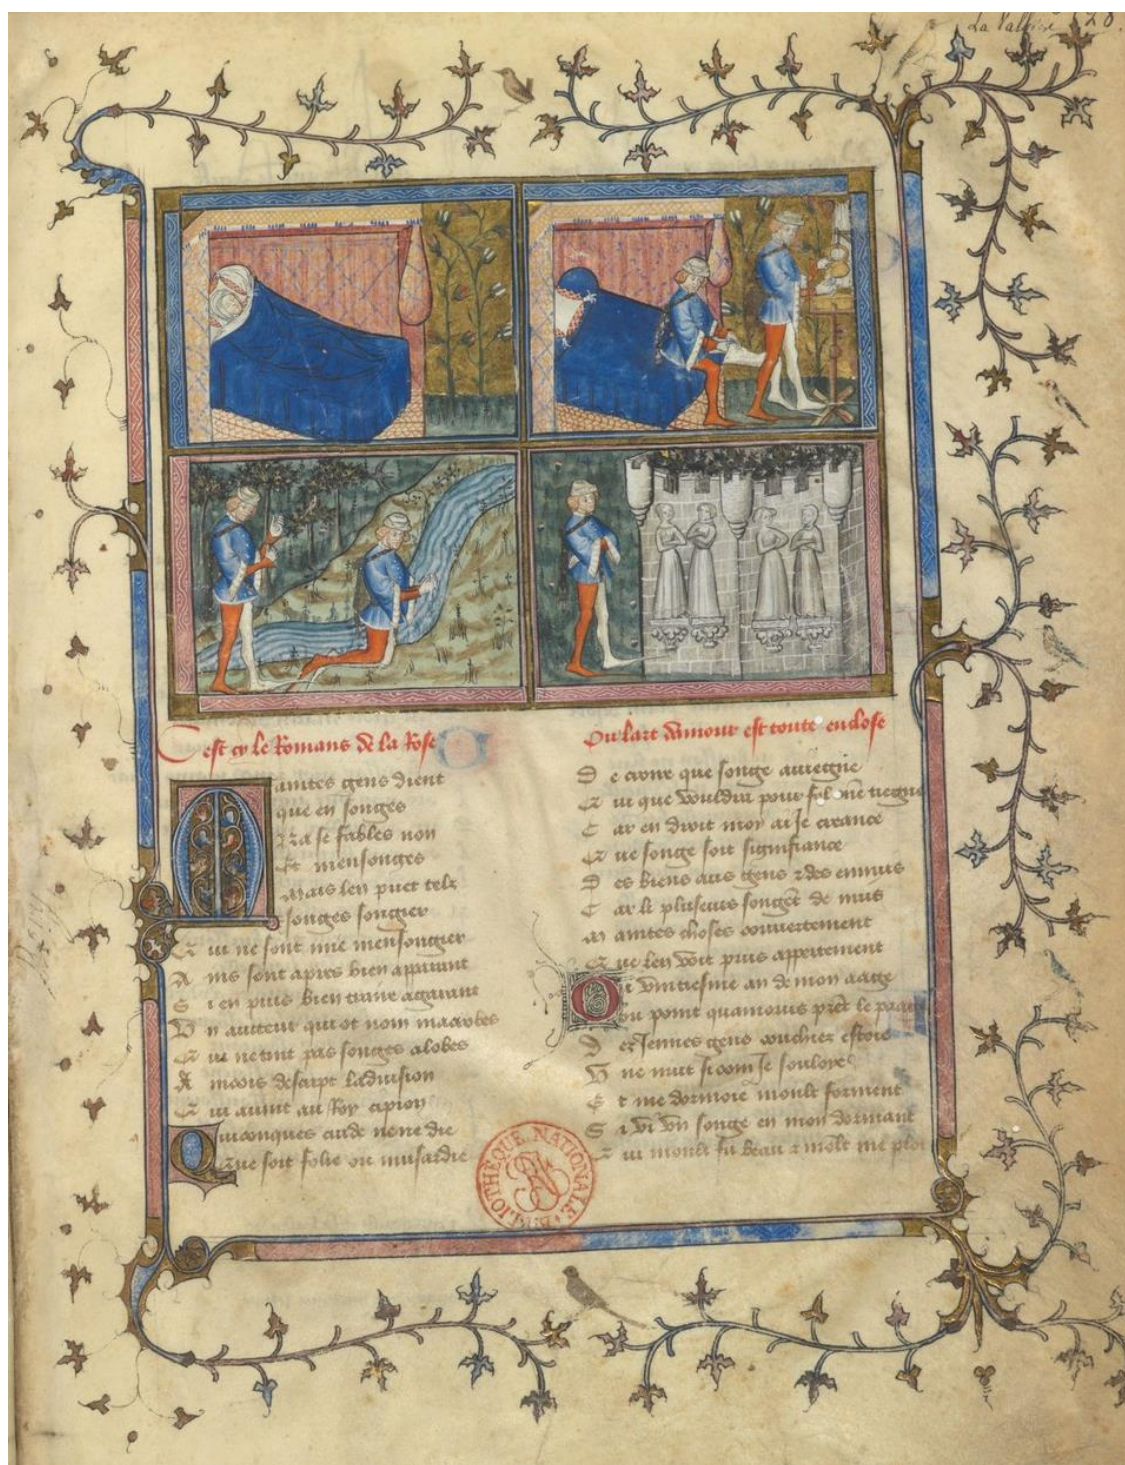 La Valliere
C est cy le Romans de la Rose
M aintes gens dient
que en songes
Na se fables non
Et mensonges
Mais len puet telz
songes songier
Q ui ne sont mie mensongier
A ins sont apres bien aparant
S i en puis bien traire a garant
U n aucteur qui ot nom macrobes
Q ui ne tint pas songes a lobes
A incois descript la vision
Q ui avint au Roy cipion
Q uiconques cuide ne ne die
Que soit folie ou musardie
Ou lart damour est toute enclose
D e croire que songe aviegne
Q ui que vouldra pour fol men tiegne
C ar en droit moy ai je creance
Q ue songe soit signifiance
D es biens aus gens et des ennuis
C ar li pluseurs songent de nuis
M aintes choses couvertement
Q ue len voit puis appertement
O u vintiesme an de mon aage
Ou point quamours prent le
D es jennes gens couchiez estoie
U ne nuit si com je souloye
E t me dormoie moult forment
S i vi un songe en mon dormant
Q ui moult fu beau et molt me
BIBLIOTHÈQUE NATIONALE